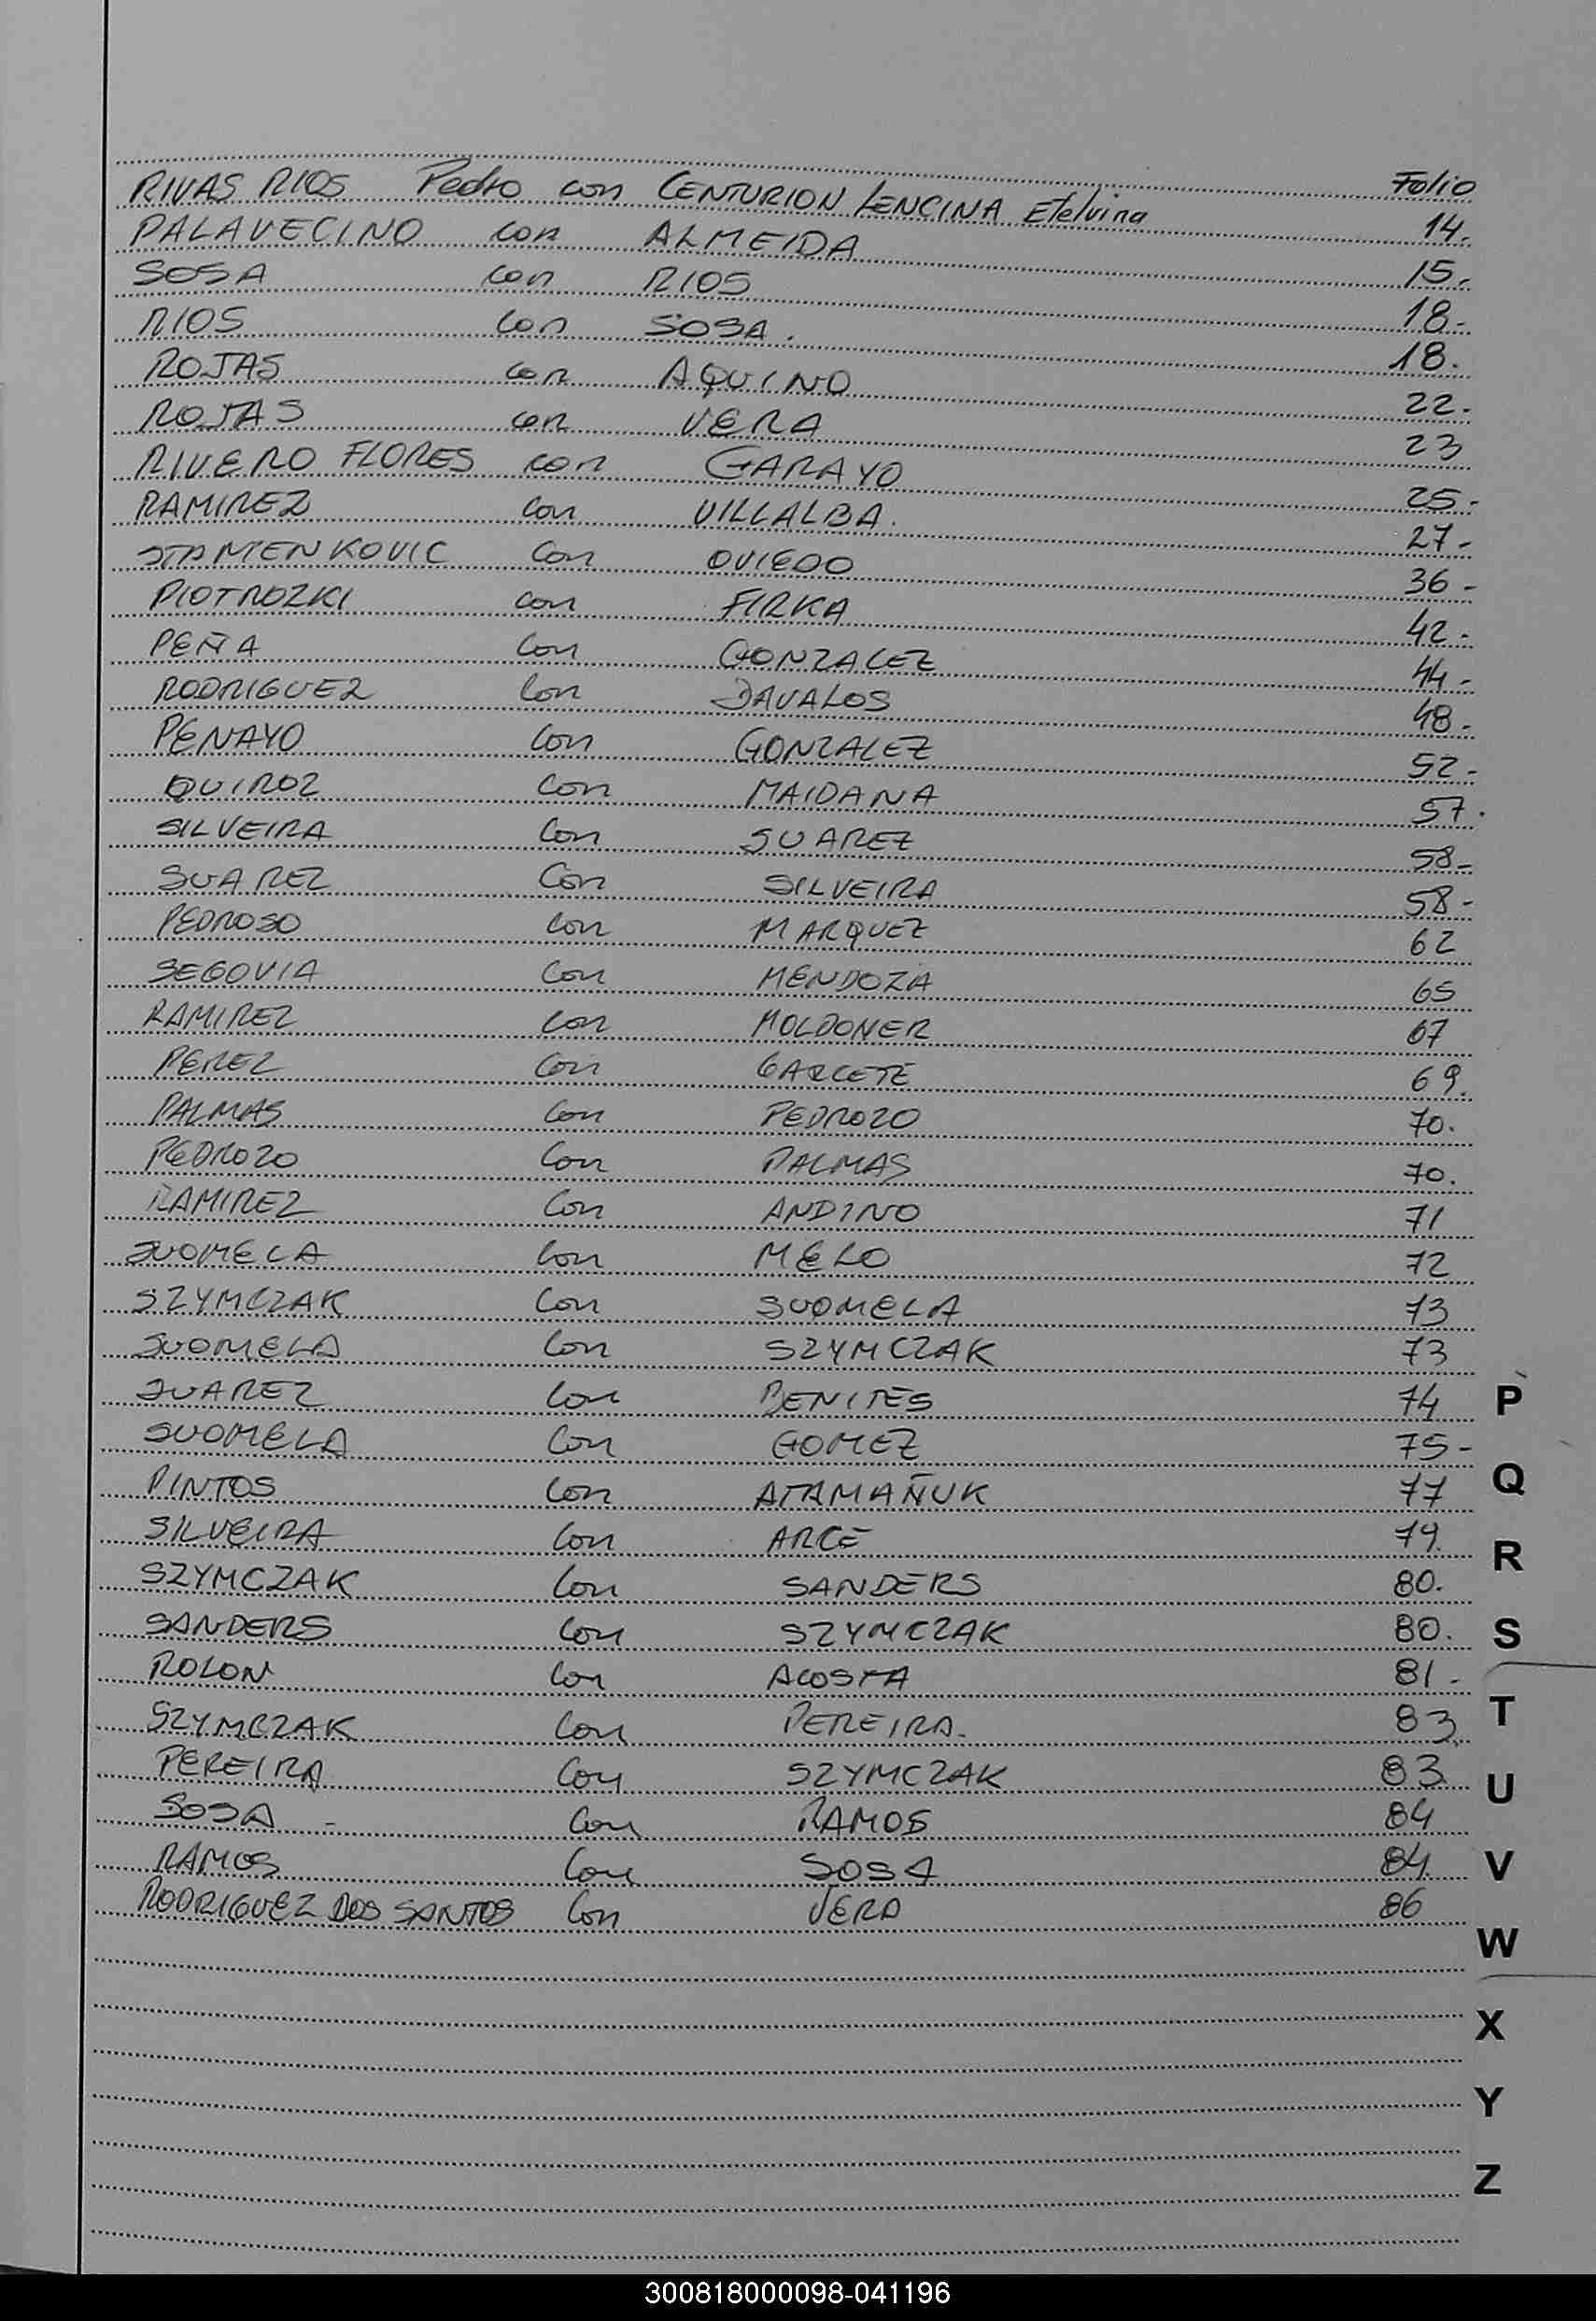 Folio
RIVAS RIOS Pedro con CENTURION LENCINA Etelvina 14.
PALAVECINO con ALMEIDA 15.
SOSA con RIOS 18.
RIOS con SOSA. 18.
ROJAS con AQUINO 22.
ROJAS con VERA 23
RIVERO FLORES con GARAYO 25.
RAMIREZ con VILLALBA. 27.
STAMENKOVIC con OVIEDO 36.
PIOTROZKI con FIRKA 42.
PEÑA con GONZALEZ 44.
RODRIGUEZ con DAVALOS 48.
PENAYO con GONZALEZ 52.
QUIROZ con MAIDANA 57.
SILVEIRA con SUAREZ 58.
SUAREZ con SILVEIRA 58.
PEDROSO con MARQUEZ 62
SEGOVIA con MENDOZA 65
RAMIREZ con MOLDONER 67
PEREZ con GARCETE 69.
PALMAS con PEDROZO 70.
PEDROZO con PALMAS 70.
RAMIREZ con ANDINO 71
SUOMELA con MELO 72
SZYMCZAK con SUOMELA 73
SUOMELA con SZYMCZAK 73
SUAREZ con BENITES 74
SUOMELA con GOMEZ 75-
PINTOS con ATAMAÑUK 77
SILVEIRA con ARCE 79.
SZYMCZAK con SANDERS 80.
SANDERS con SZYMCZAK 80.
ROLON con ACOSTA 81.
SZYMCZAK con PEREIRA. 83.
PEREIRA con SZYMCZAK 83
SOSA - con RAMOS 84
RAMOS con SOSA 84.
RODRIGUEZ DOS SANTOS con VERA 86
P
Q
R
S
T
U
V
W
X
Y
Z
300818000098-041196